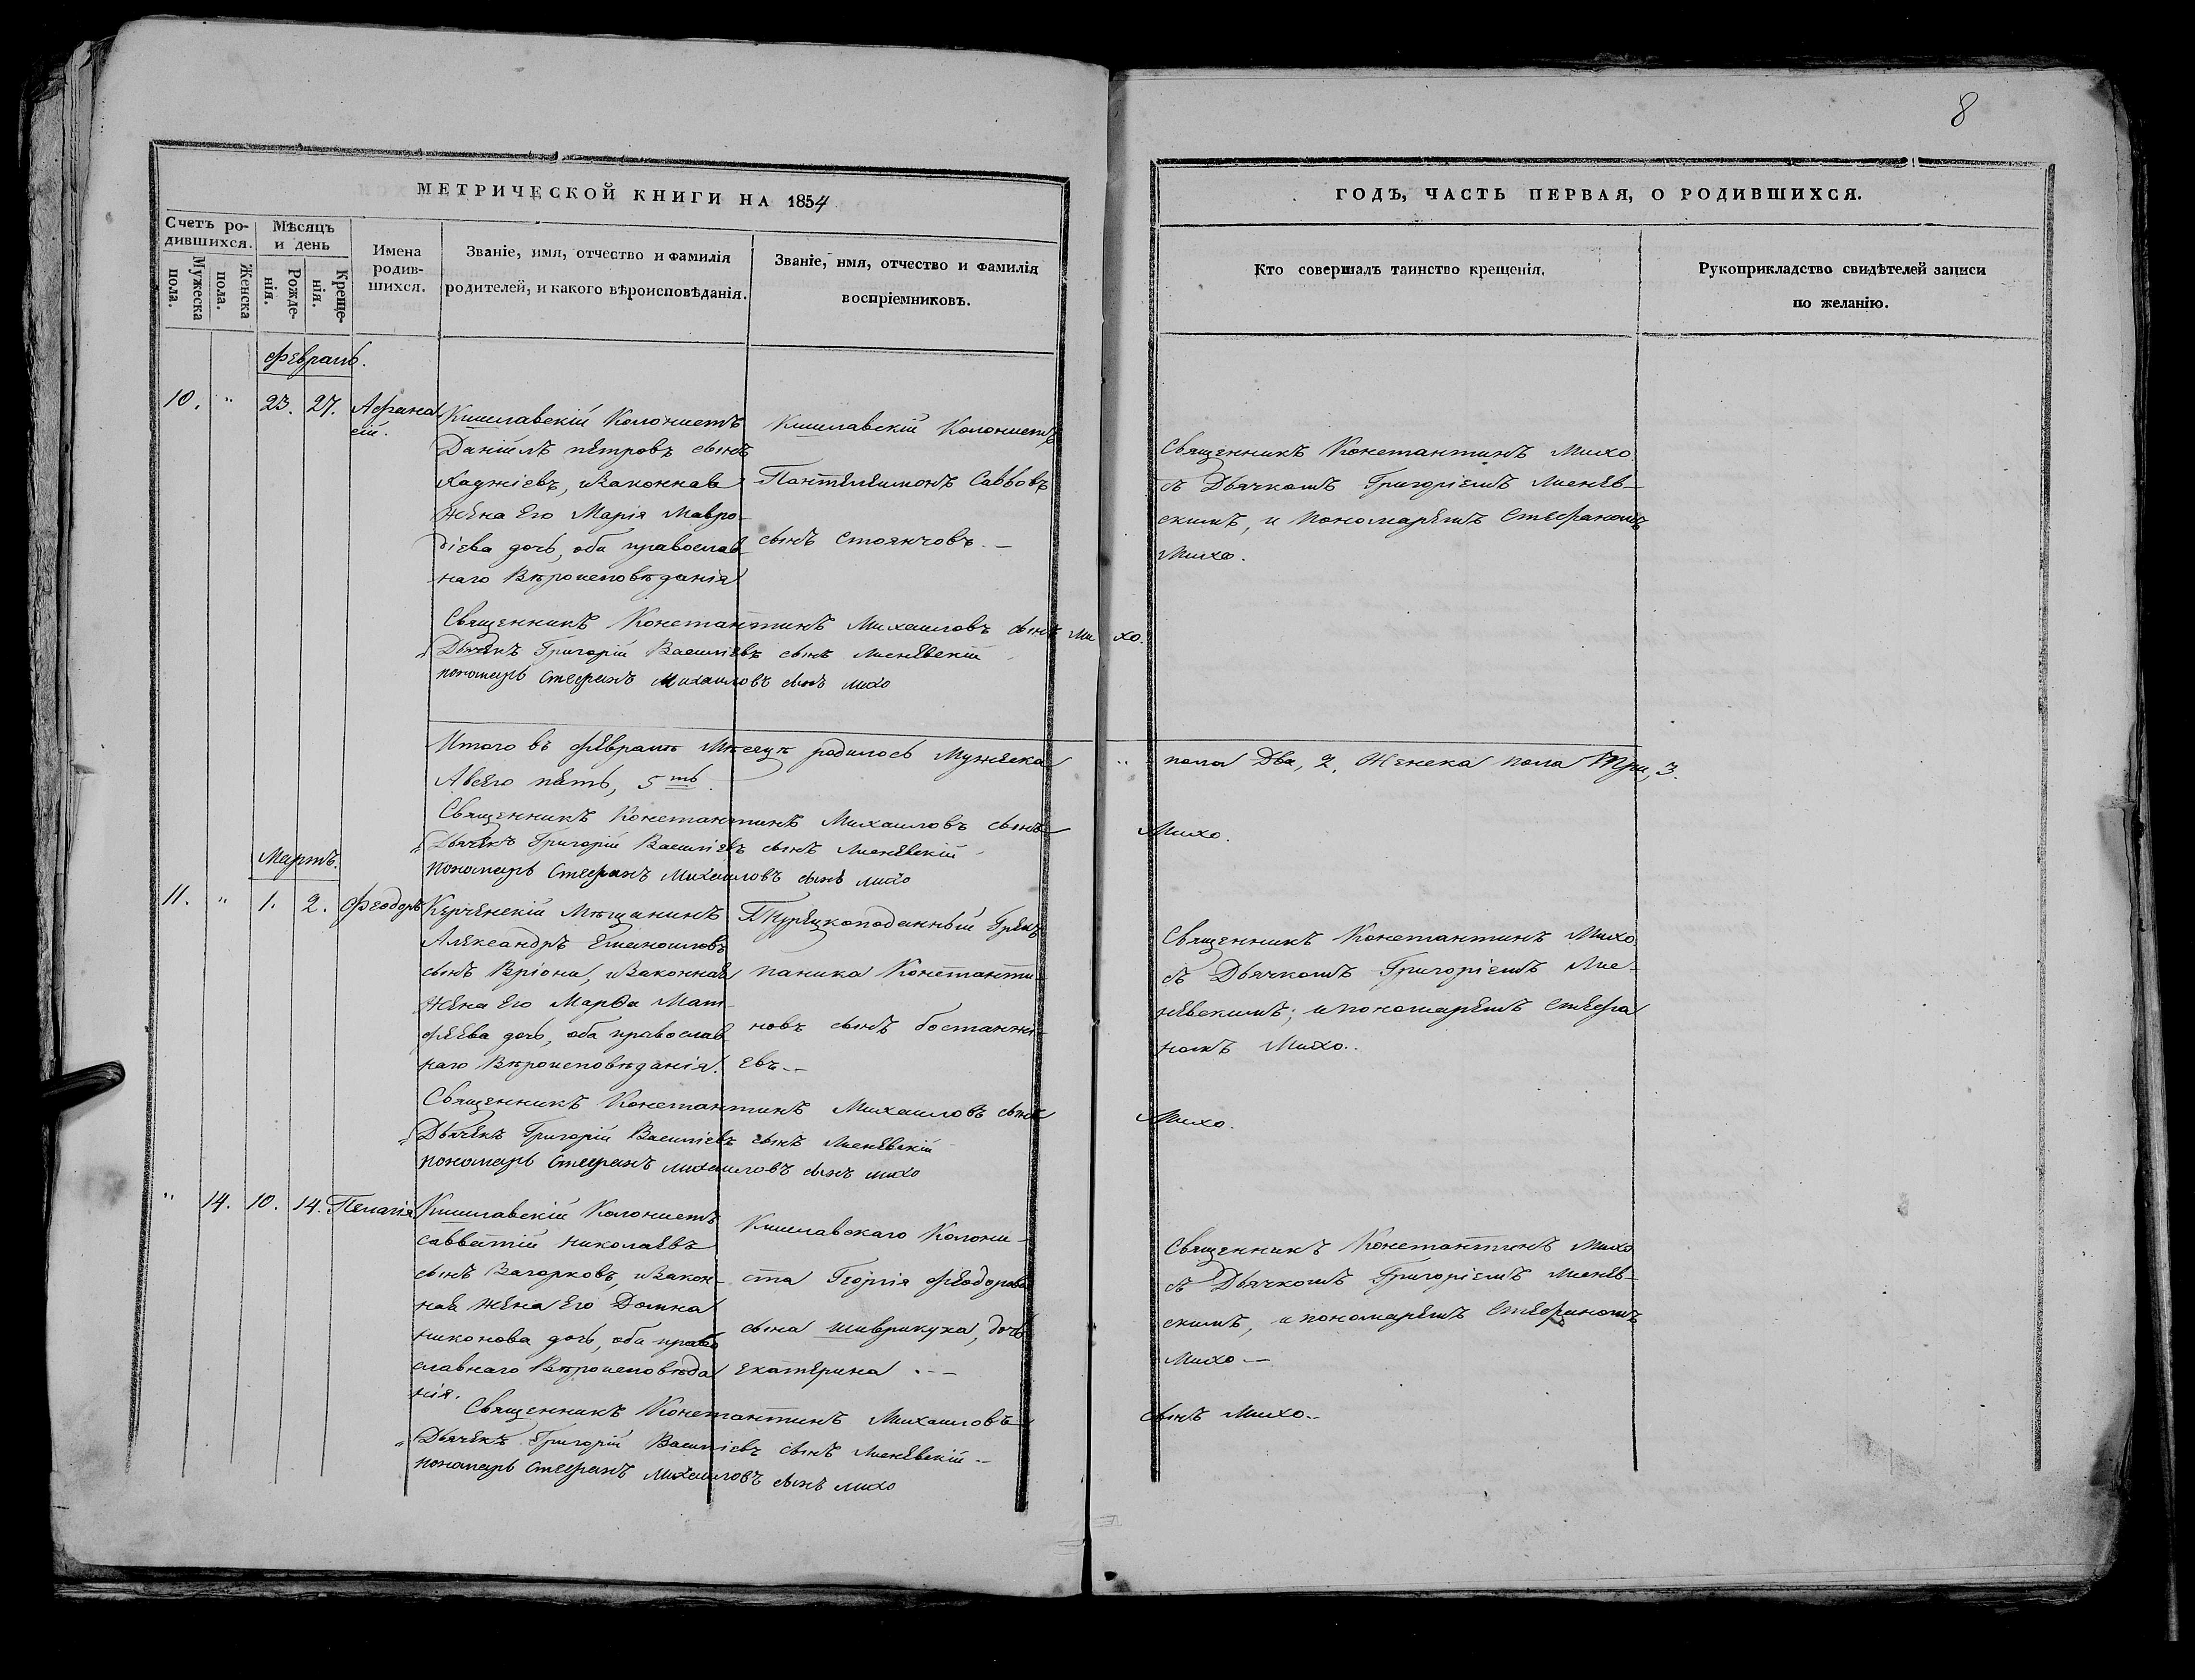 8
МЕТРИЧЕСКОЙ КНИГИ НА 1854
ГОДЪ, ЧАСТЬ ПЕРВАЯ, О РОДИВШИХСЯ.
Счетъ ро-
дившихся.
Мужеска
пола.
Женска
пола.
Мѣсяцъ
и день
Рожде-
нія.
Креще-
нія.
Имена
родив-
шихся.
Званіе, имя, отчество и фамилія
родителей, и какого вѣроисповѣданія.
Званіе, имя, отчество и фамилія
воспріемниковъ.
Кто совершалъ таинство крещенія.
Рукоприкладство свидѣтелей записи
по желанію.
Февраль.
10. " 23. 27. Афана
сій.
Кишлавскій Колонистъ
Даніилъ Петровъ сынъ
Хаджіевъ, и законная
жена его Марія Мавро-
діева дочь, оба православ
наго Вѣроисповѣданія
Кишлавскій Колонистъ
Пантелеимонъ Саввовъ
сынъ Стоянчовъ.—
Священникъ Константинъ Михо
съ Дьячкомъ Григоріемъ Лиснев-
скимъ, и пономаремъ Стефаномъ
Михо.
Священникъ Константинъ Михаиловъ сынъ Михо.
Дьячекъ Григорій Василіевъ сынъ Лисневскій
пономарь Стефанъ Михаиловъ сынъ Михо
Итого въ Февралѣ Мѣсяцѣ родилось Мужеска " пола Два, 2. Женска пола Три, 3.
А всего пять, 5ть.
Священникъ Константинъ Михаиловъ сынъ Михо.
Дьячекъ Григорій Василіевъ сынъ Лисневскій
Пономарь Стефанъ Михаиловъ сынъ Михо
Мартъ.
11. " 1. 2. Феодоръ
Керченскій Мѣщанинъ
Александръ Емануиловъ
сынъ Вріони, и законная
жена его Марѳа Мат-
феева дочь, оба православ
наго Вѣроисповѣданія.
Турецкоподанный Грекъ
Паника Константи-
новъ сынъ Бостанжі-
евъ.—
Священникъ Константинъ Михо
съ Дьячкомъ Григоріемъ Лис-
невскимъ; и пономаремъ Стефа
номъ Михо.
Священникъ Константинъ Михаиловъ сынъ Михо.
Дьячекъ Григорій Василіевъ сынъ Лисневскій
пономарь Стефанъ Михаиловъ сынъ Михо
" 14. 10. 14. Пелагія
Кишлавскій Колонистъ
Савватій Николаевъ
сынъ Загорковъ, и закон-
ная жена его Домна
Никонова дочь, оба право
славнаго Вѣроисповѣда
нія.
Кишлавскаго Колони-
ста Георгія Феодорова
сына Шиврикука, дочь
Екатерина.—
Священникъ Константинъ Михо
съ Дьячкомъ Григоріемъ Лиснев-
скимъ, и пономаремъ Стефаномъ
Михо—
Священникъ Константинъ Михаиловъ сынъ Михо.
Дьячекъ Григорій Василіевъ сынъ Лисневскій
пономарь Стефанъ Михаиловъ сынъ Михо